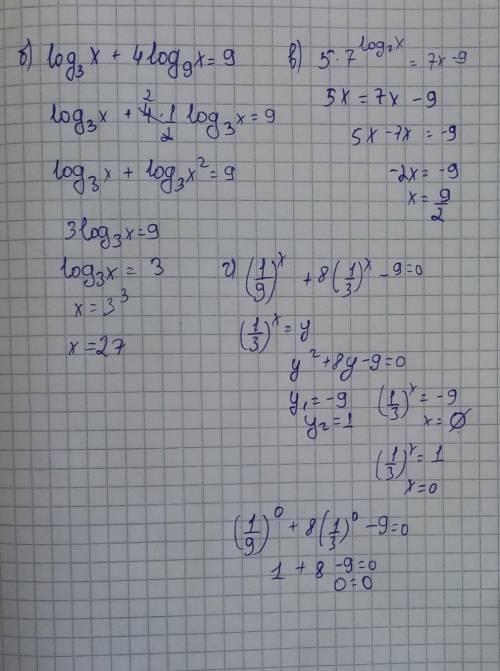 б) log₃x + 4log₉x = 9
log₃x + 4·1/2 log₃x = 9
2
log₃x + log₃x² = 9
3log₃x = 9
log₃x = 3
x = 3³
x = 27
в) 5·7^log₇x = 7x - 9
5x = 7x - 9
5x - 7x = -9
-2x = -9
x = 9/2
г) (1/9)^x + 8(1/3)^x - 9 = 0
(1/3)^x = y
y² + 8y - 9 = 0
y₁ = -9
y₂ = 1
(1/3)^x = -9
x = ∅
(1/3)^x = 1
x = 0
(1/9)⁰ + 8(1/3)⁰ - 9 = 0
1 + 8 - 9 = 0
0 = 0